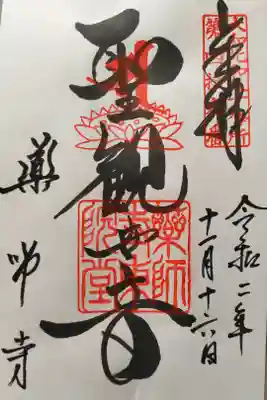 奉拝
令和二年
十一月十六日
聖観世音
藥師
寺東
院堂
薬師寺